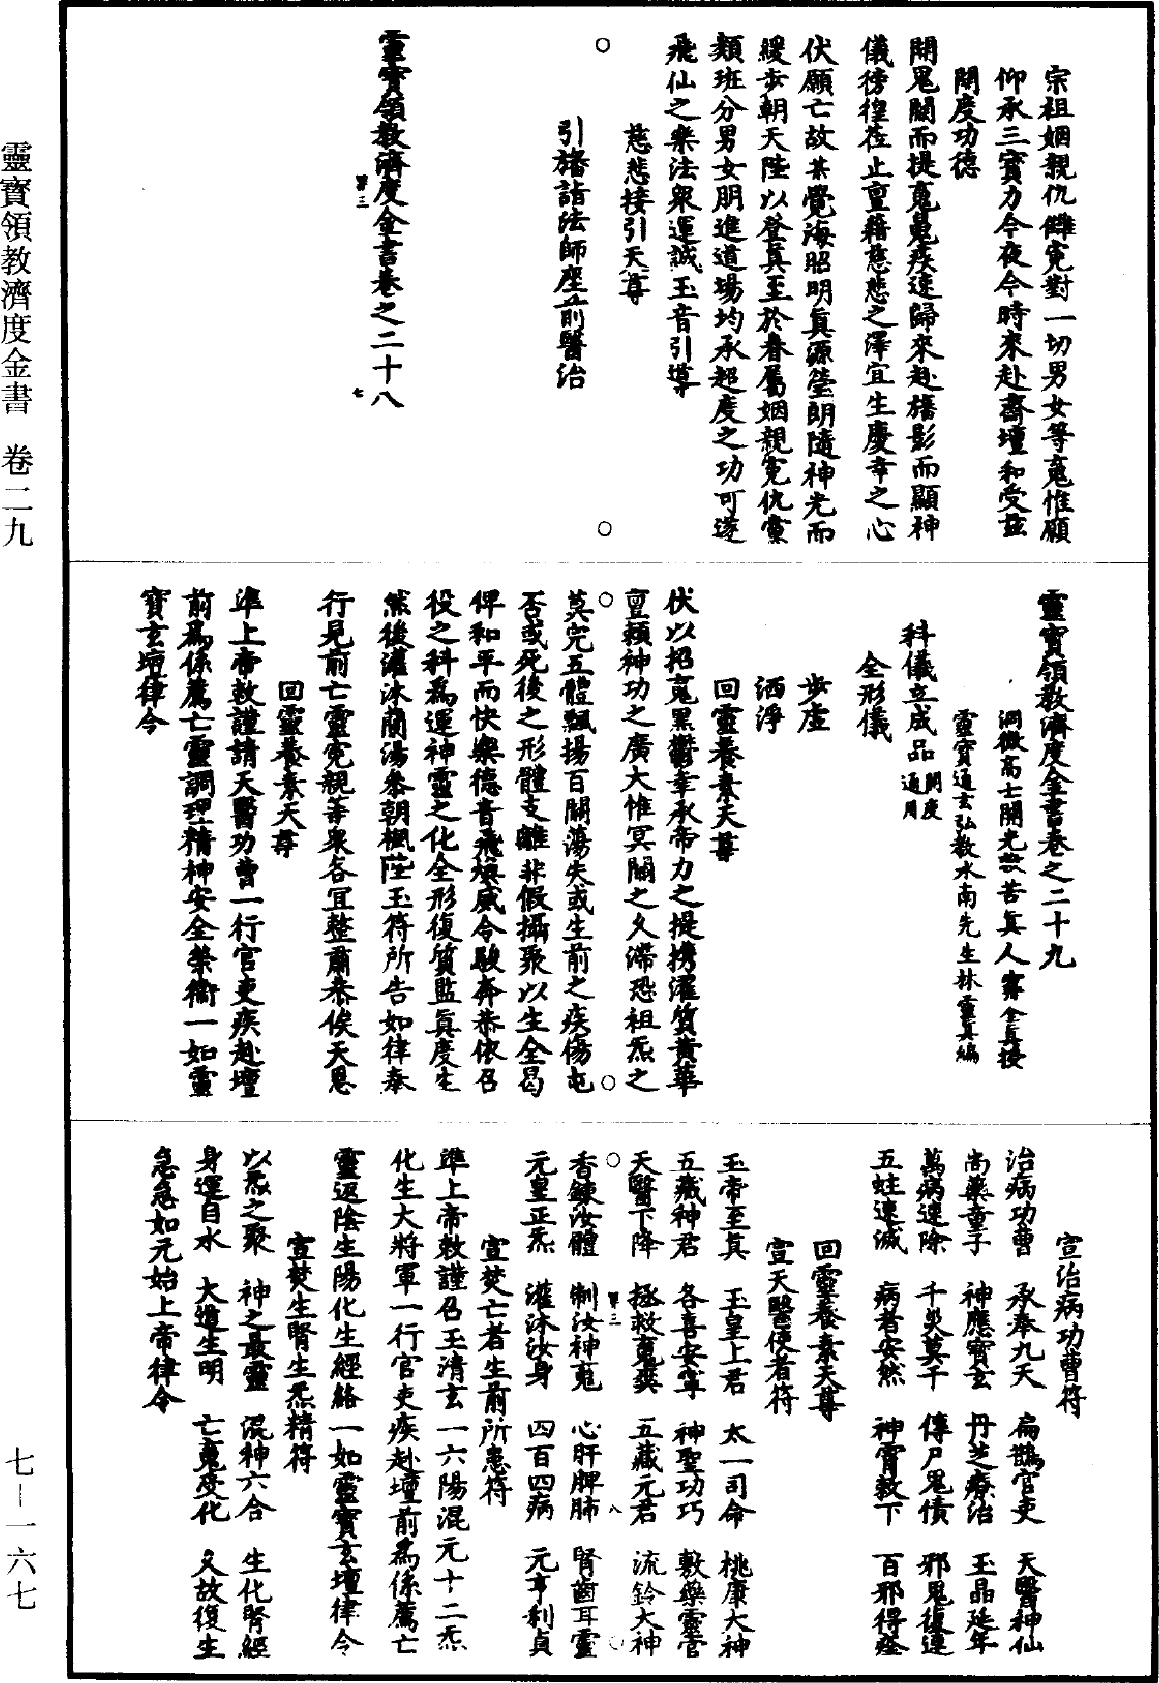 宗祖姻親仇讎寃對一切男女等䰟惟願
仰承三寳力今夜今時來赴齋壇和受兹
開度功德
開䰟關而提䰟䰟疾速歸來赴旛影而顯神
儀徬徨莅止亶藉慈悲之澤宜生慶幸之心
伏願亡故某覺海昭明眞源瑩朗隨神光而
緩步朝天陛以登眞至於眷屬姻親寃仇靈
類班分男女朋進道場均承超度之功可遂
飛仙之樂法衆運誠玉音引導
慈悲接引天尊
引旛詣法師座前醫治
靈寳領教濟度金書卷之二十八
第三 七
靈寳領教濟度金書卷之二十九
洞微高士開光救苦眞人寗全眞授
靈寳通玄弘教水南先生林靈眞編
科儀立成品開度通用
全形儀
步虛
洒淨
回靈養素天尊
伏以招䰟黑鬱幸承帝力之提携濯質黄華
亶頼神功之廣大惟冥關之久滯恐祖炁之
莫完五體飄揚百關蕩失或生前之疾傷屯
否或死後之形體支離非假攝聚以生全曷
俾和平而快樂德音飛煥威令駿奔恭依召
役之科爲運神靈之化全形復質監眞度生
然後灌沐蘭湯恭朝楓陛玉符所告如律奉
行見前亡靈寃親等衆各宜整肅恭俟天恩
回靈養素天尊
準上帝敕謹請天醫功曹一行官吏疾赴壇
前爲係薦亡靈調理精神安全榮衞一如靈
寳玄壇律令
宣治病功曹符
治病功曹 承奉九天 扁鵲官吏 天醫神仙
尚藥童子 神應寳玄 丹芝療治 玉晶延年
萬病速除 千災莫干 傳尸鬼債 邪鬼復連
五蛀速滅 病者安然 神霄敕下 百邪得痊
回靈養素天尊
宣天醫使者符
玉帝至眞 玉皇上君 太一司命 桃康大神
五藏神君 各喜安寧 神聖功巧 敷藥靈官
天醫下降 拯救䰟爽 五藏元君 流鈴大神
香錬汝體 制汝神䰟 心肝脾肺 腎齒耳靈
元皇正炁 灌沐汝身 四百四病 元亨利貞
第三 八
宣焚亡者生前所患符
準上帝敕謹召玉清玄一六陽混元十二炁
化生大將軍一行官吏疾赴壇前爲係薦亡
靈返陰生陽化生經絡一如靈寳玄壇律令
宣焚生腎生炁精符
以炁之聚 神之最靈 混神六合 生化腎經
身運自水 大道生明 亡䰟度化 久故復生
急急如元始上帝律令
靈寶領教濟度金書 卷二九
七—一六七